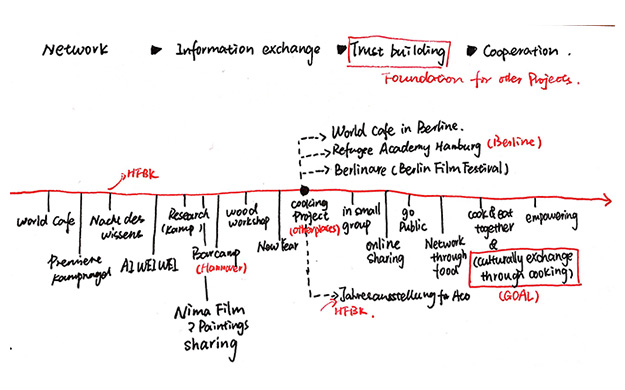 Network ▸ Information exchange ▸ Trust building ▸ Cooperation.
Foundation for otler Projects.
World Cafe in Berline.
Refugee Academy Hamburg (Berline)
Berlinare (Berlin Film Festival)
HFBK
World Cafe
Premiere
Kampnagel
Nacht des
wissens
AI WEI WEI
Research
(Kamp)
Barcamp
(Hannover)
Nima Film
? Paintings
sharing
wood
workshop
New Year
cooking
Project
(other places)
in small
group
online
sharing
go
Public
Network
through
food
cook & eat
together
&
(culturally exchange
through cooking)
(GOAL)
empowering
Jahresausstellung for Aco
HFBK.